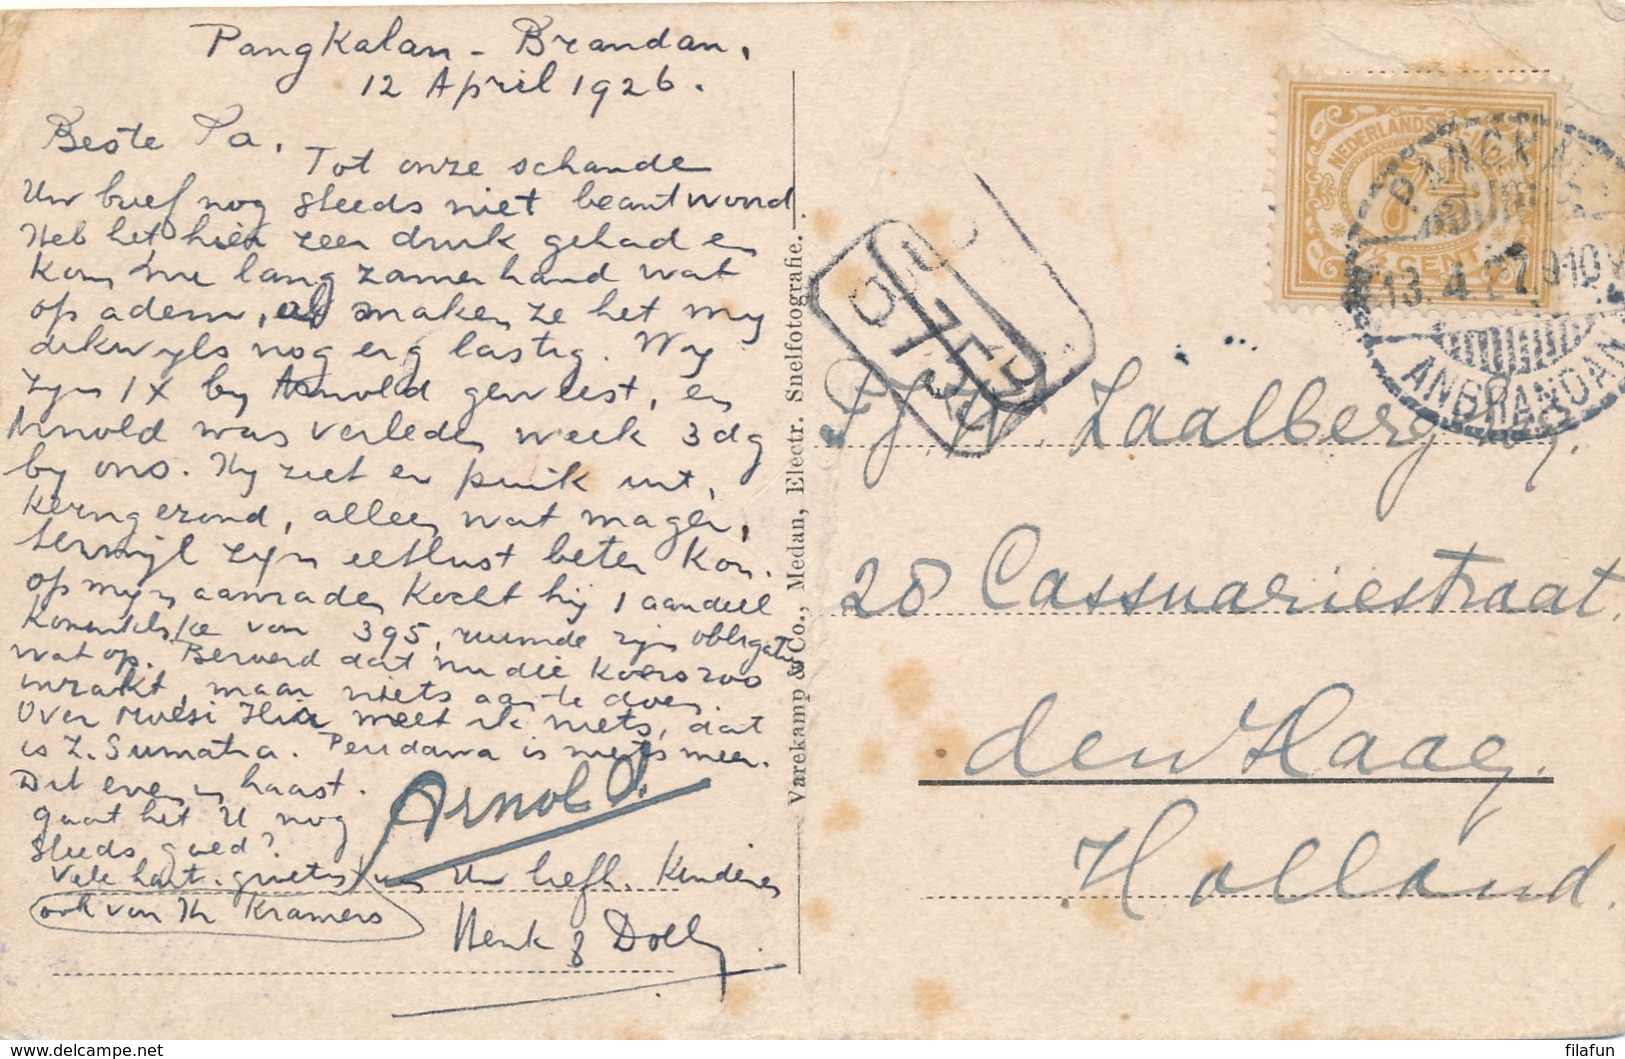 Pangkalan - Brandan,
12 April 1926.
Beste Pa,
Tot onze schande
Uw brief nog steeds niet beantwoord.
Heb het hier zeer druk gehad en
kom nu langzamerhand wat
op adem, al maken ze het my
dikwyls nog erg lastig. Wy
zyn 1 X by Arnold geweest, en
Arnold was verleden week 3 dg
by ons. Hy ziet er puik uit,
Kerngezond, alleen wat mager,
terwyl zyn eetlust beter kon.
op myn aanraden kocht hij 1 aandeel
Koninklijke van 395, ruimde zyn obligatie
wat op. Beroerd dat nu die koers zoo
inzakt, maar niets aan te doen.
Over Moesi Ilir weet ik niets, dat
is Z. Sumatra. Perdawa is niets meer.
Dit even in haast.
gaat het U nog
steeds goed?
Arnold.
Vele hart. groeten van Uw liefh. Kinderen
ook van Kramers
Henk & Dolly
Varekamp & Co., Medan, Electr. Snelfotografie.
NEDERLANDSCH-INDIË
7½
CENT
PANGKAL
13.4.27.9-10V
ANBRANDAN
W. Zaalberg
28 Cassuariestraat.
den Haag.
Holland.
filafun
delcampe.net